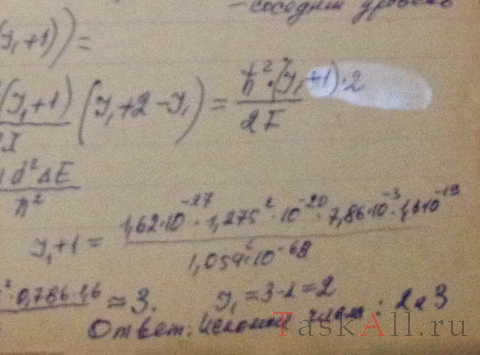 соседний уровень
(J₁+1)) =
(J₁+1)/2I (J₁+2−J₁) = ħ²·(J₁+1)·2/2I
d²ΔE/ħ²
J₁+1 = 1,62·10⁻²⁷·1,275²·10⁻²⁰·7,86·10⁻³·1,6·10⁻¹⁹/1,054²·10⁻⁶⁸
²·0,786·1,6 ≈ 3. J₁=3-1=2
Ответ: : 2 и 3
TaskAll.ru